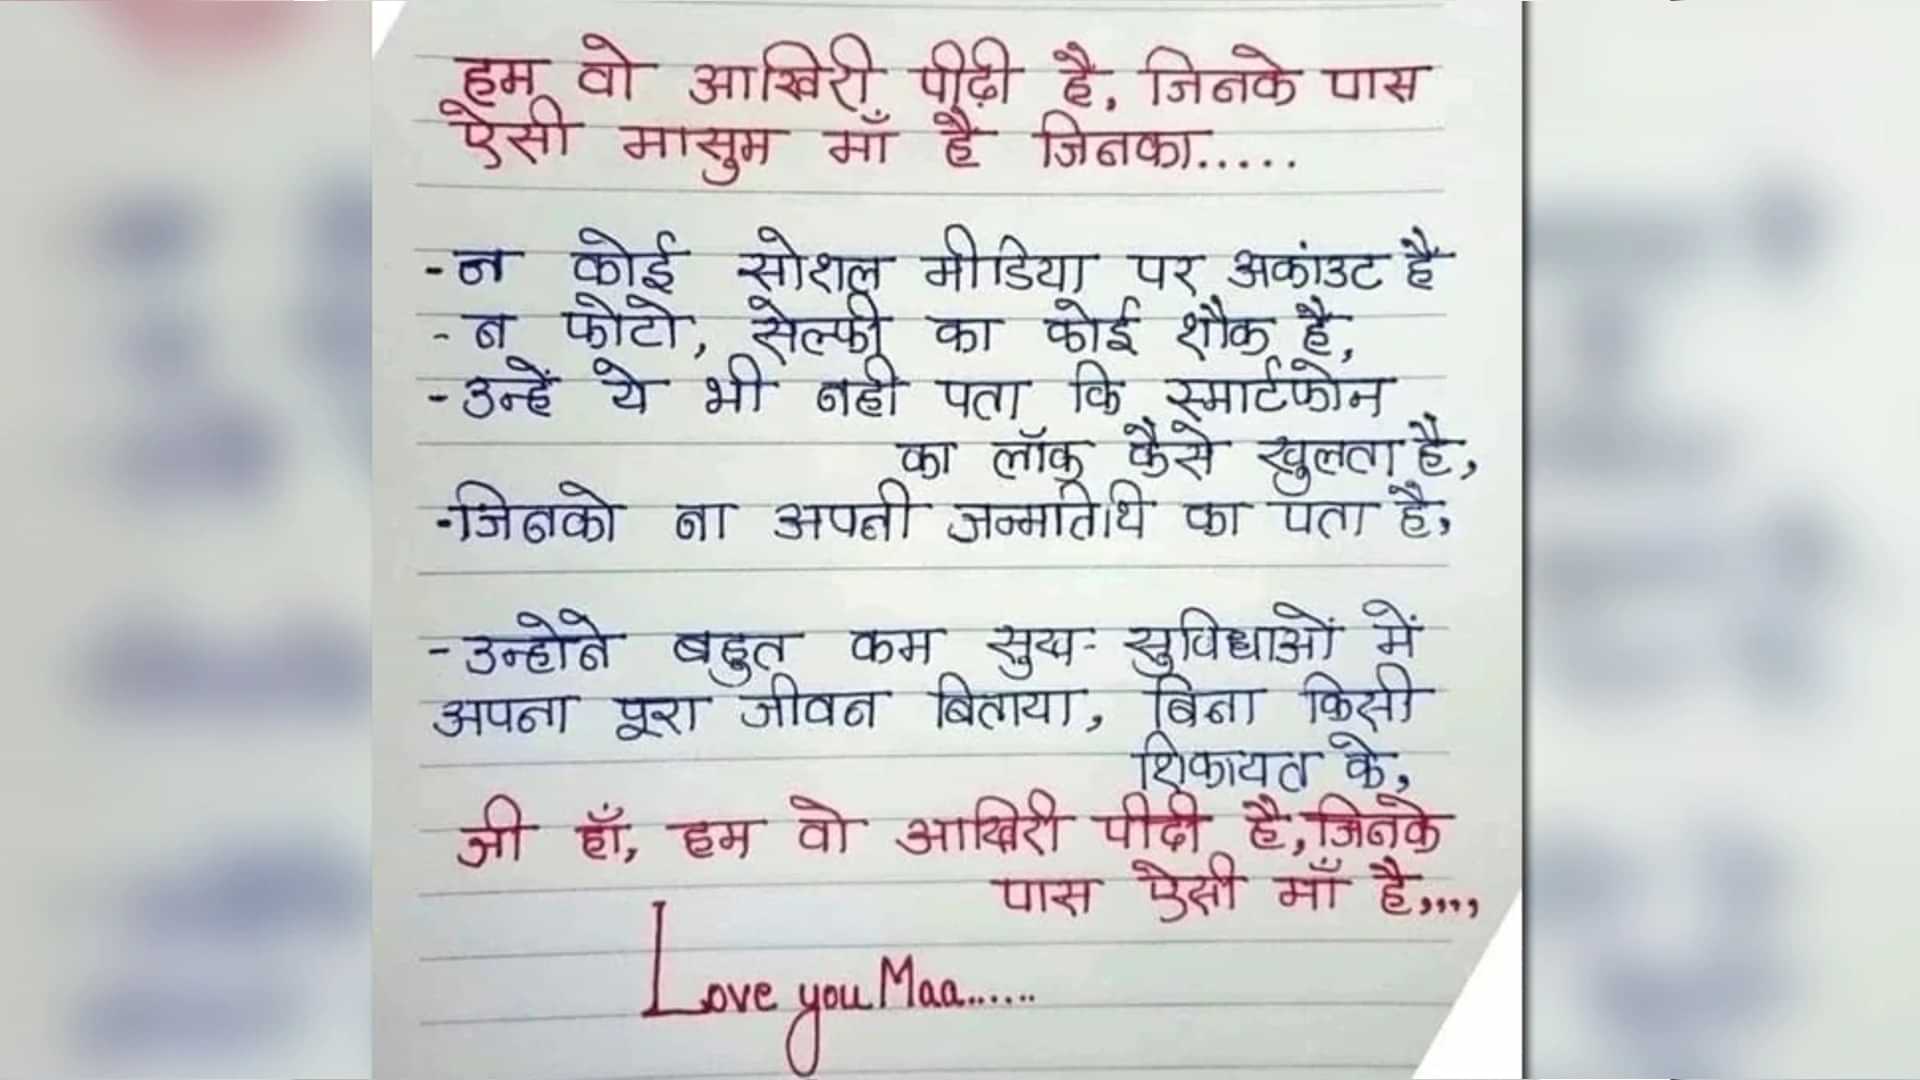 हम वो आखिरी पीढ़ी है, जिनके पास
ऐसी मासुम माँ है जिनका.....
-न कोई सोशल मीडिया पर अकांउट है
- न फोटो, सेल्फी का कोई शौक है,
-उन्हें ये भी नही पता कि स्मार्टफोन
का लॉक कैसे खुलता है,
-जिनको ना अपनी जन्मतिथि का पता है,
-उन्होने बहुत कम सुख- सुविधाओं में
अपना पूरा जीवन बिताया, बिना किसी
शिकायत के,
जी हाँ, हम वो आखिरी पीढी है, जिनके
पास ऐसी माँ है,,,,
Love you Maa......